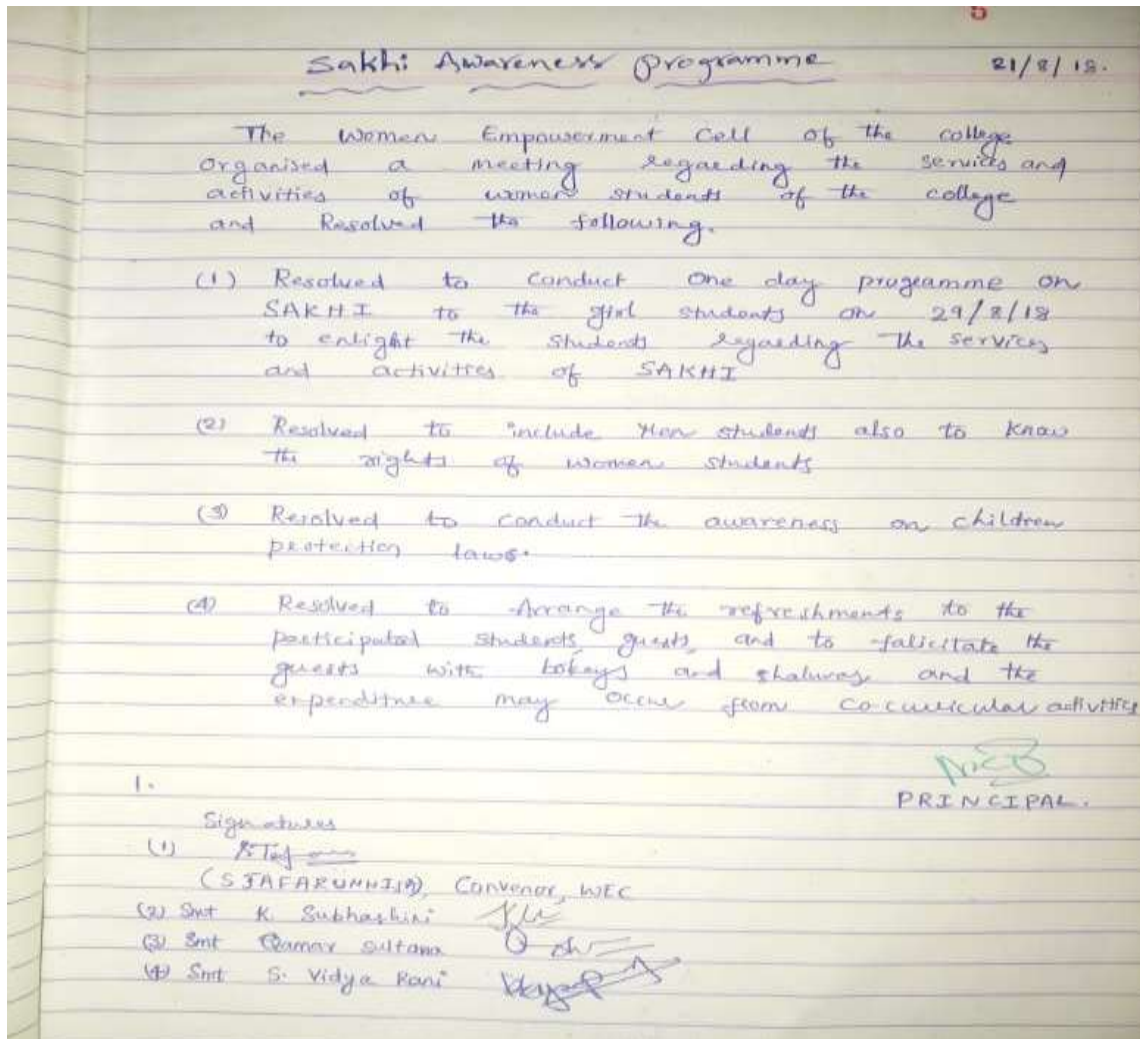 5
Sakhi Awareness Programme 21/8/18.
The Women Empouserment Cell of the college
Organised a meeting regarding the services and
activities of women students of the college
and Resolved the following.
(1) Resolved to conduct One day programme on
SAKHI to the girl students on 29/8/18
to enlight the Students regarding the services
and activities of SAKHI
(2) Resolved to include Men students also to know
the rights of women students
(3) Resolved to conduct the awareness on children
protection laws.
(4) Resolved to Arrange the refreshments to the
participated students, guests, and to falicitate the
guests with bokays and shaluvas and the
expenditure may occur from co-curricular activities
PRINCIPAL.
1.
Signatures
(1)
(S JAFARUNNISA), Convenor, WEC
(2) Smt K. Subhashini
(3) Smt Qamar Sultana
(4) Smt S. Vidya Rani